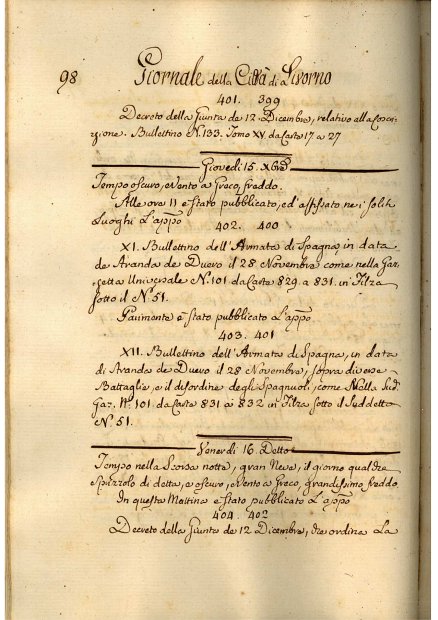 98 Giornale della Città di Livorno
401. 399
Decreto della Giunta de 12. Dicembre, relativo alla Coscri-
zione. Bullettino N. 133. Tomo XV da Carte 17 a 27
Giovedì 15. Xbre
Tempo oscuro, e Vento a Greco, freddo.
Alle ore 11 è stato pubblicato, ed' affissato ne i soliti
Luoghi L'appo
402. 400
XI. Bullettino dell'Armata di Spagna, in data
de Aranda de Duero il 28 Novembre come nella Gaz-
zetta Universale N. 101 da Carte 829 a 831. in Filza
sotto il N. 51.
Parimente è stato pubblicato L'appo
403. 401
XII. Bullettino dell'Armata di Spagna, in data
di Aranda de Duero il 28 Novembre, sopra diverse
Battaglie, e il disordine degli Spagnuoli, come Nella Sudª
Gaz. N. 101 da Carte 831 a 832 in Filza sotto il Suddetto
N. 51.
Venerdì 16. Detto
Tempo nella Scorsa notte, gran Neve, il giorno qualche
Spruzzolo di detta, e oscuro, e Vento a Greco, grandissimo freddo
In questa Mattina è stato pubblicato L'appo
404. 402
Decreto della Giunta de 12 Dicembre, che ordina La